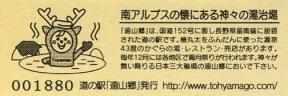 南アルプスの懐にある神々の湯治場
「遠山郷」は、国道152号に面し長野県最南端に設置
された道の駅です。檜丸太をふんだんに使った源泉
43度のかぐらの湯・レストラン・売店があります。
毎年12月には各地区で霜月祭りが行われます。神々が
舞い降りる日本三大秘境の遠山郷においで下さい。
001880 道の駅「遠山郷」発行 http://www.tohyamago.com/